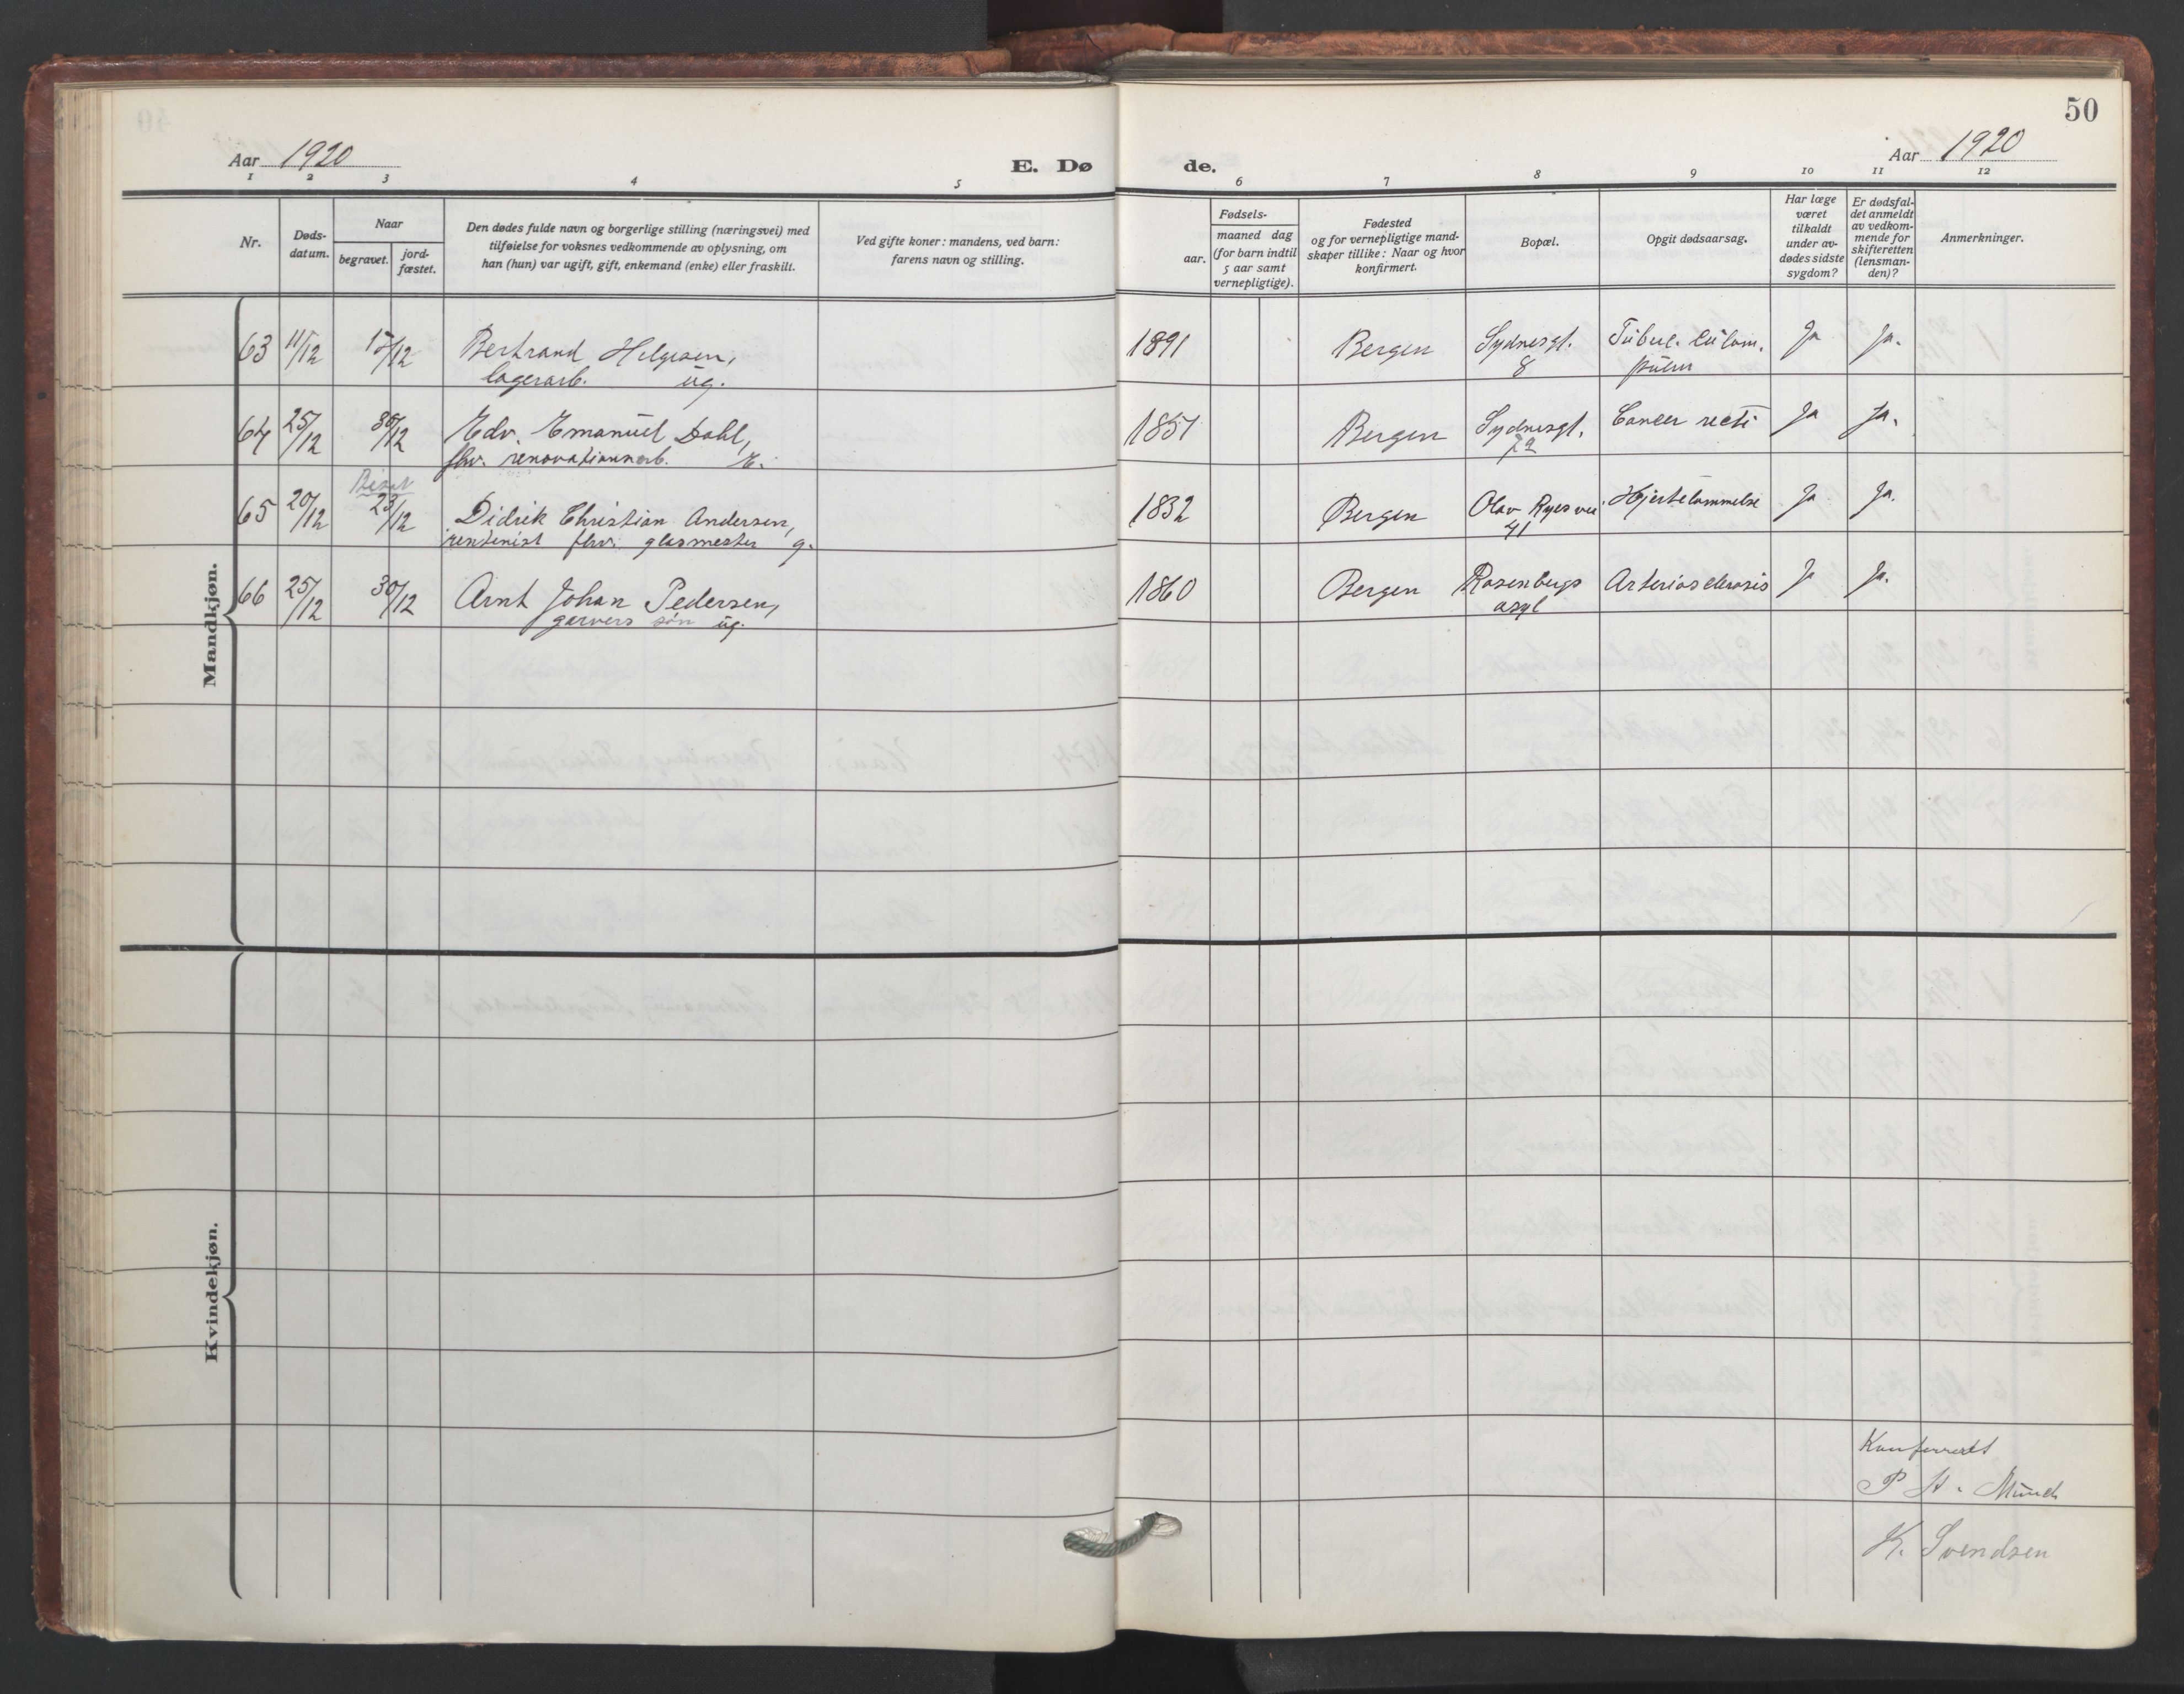 50
Aar 1920
E. Dø
de.
Aar 1920
1 2 3 4 5 6 7 8 9 10 11 12
Nr.
Døds-
datum.
Naar
begravet.
jord-
fæstet.
Den dødes fulde navn og borgerlige stilling (næringsvei) med
tilføielse for voksnes vedkommende av oplysning, om
han (hun) var ugift, gift, enkemand (enke) eller fraskilt.
Ved gifte koner: mandens, ved barn:
farens navn og stilling.
Fødsels-
aar.
maaned dag
(for barn indtil
5 aar samt
vernepligtige).
Fødested
og for vernepligtige mand-
skaper tillike: Naar og hvor
konfirmert.
Bopæl.
Opgit dødsaarsag.
Har læge
været
tilkaldt
under av-
dødes sidste
sygdom?
Er dødsfal-
det anmeldt
av vedkom-
mende for
skifteretten
(lensman-
den)?
Anmerkninger.
Mandkjøn.
63 11/12 15/12 Bertrand Helgesen, 1891 Bergen Sydnesgt. Tuberc. lulom. Ja Ja.
lagerarb. ug. 8 pulm
64 25/12 30/12 Edv. Emanuel Dahl, 1857 Bergen Sydnesgt. Cancer recti Ja Ja.
fhv. renovationsarb. E.
65 20/12 23/12 Didrik Christian Andersen, 1832 Bergen Olav Ryes vei Hjertelammelse Ja Ja.
rentenist fhv. glasmester g. 41
66 25/12 30/12 Arnt Johan Pedersen, 1860 Bergen Rosenbergs Arteriosclerosis Ja Ja.
garvers søn ug. asyl
Kvindekjøn.
Konferert
P. A. Munch
K. Svendsen